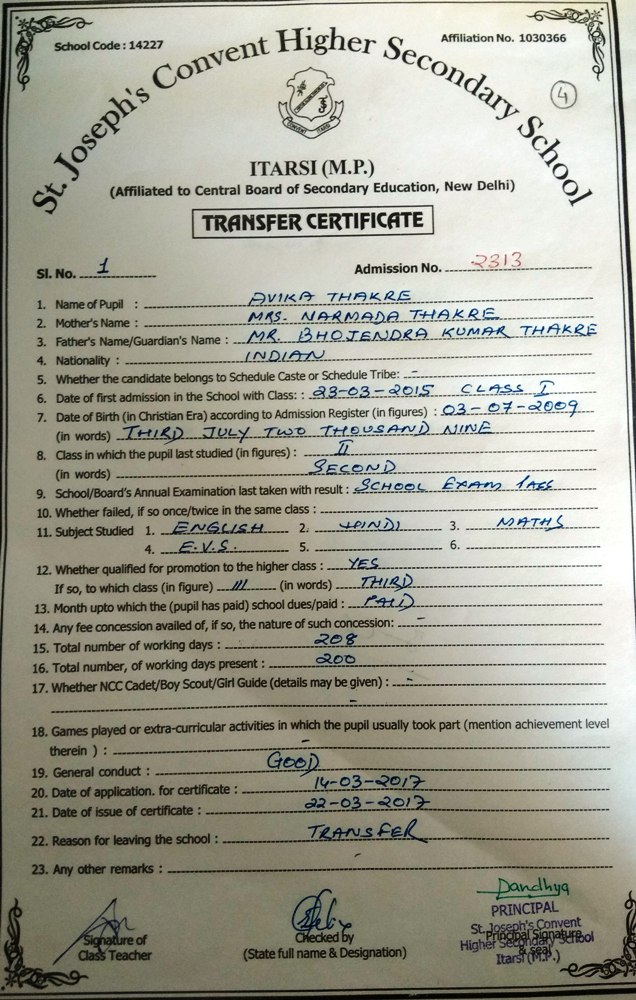 School Code : 14227
Affiliation No. 1030366
St. Joseph's Convent Higher Secondary School
4
CONVENT ITARSI
ITARSI (M.P.)
(Affiliated to Central Board of Secondary Education, New Delhi)
TRANSFER CERTIFICATE
Sl. No. 1
Admission No. 2313
1. Name of Pupil : AVIKA THAKRE
2. Mother's Name : MRS. NARMADA THAKRE
3. Father's Name/Guardian's Name : MR. BHOJENDRA KUMAR THAKRE
4. Nationality : INDIAN
5. Whether the candidate belongs to Schedule Caste or Schedule Tribe: -
6. Date of first admission in the School with Class: : 23-03-2015 CLASS I
7. Date of Birth (in Christian Era) according to Admission Register (in figures) : 03-07-2009
(in words) THIRD JULY TWO THOUSAND NINE
8. Class in which the pupil last studied (in figures) : II
(in words) SECOND
9. School/Board's Annual Examination last taken with result : SCHOOL EXAM PASS
10. Whether failed, if so once/twice in the same class :
11. Subject Studied 1. ENGLISH 2. HINDI 3. MATHS
4. E.V.S. 5. 6.
12. Whether qualified for promotion to the higher class : YES
If so, to which class (in figure) III (in words) THIRD
13. Month upto which the (pupil has paid) school dues/paid : PAID
14. Any fee concession availed of, if so, the nature of such concession: -
15. Total number of working days : 208
16. Total number, of working days present : 200
17. Whether NCC Cadet/Boy Scout/Girl Guide (details may be given) : -
-
18. Games played or extra-curricular activities in which the pupil usually took part (mention achievement level
therein ) : -
19. General conduct : GOOD
20. Date of application. for certificate : 14-03-2017
21. Date of issue of certificate : 22-03-2017
22. Reason for leaving the school : TRANSFER
23. Any other remarks : -
Signature of
Class Teacher
Checked by
(State full name & Designation)
PRINCIPAL
St. Joseph's Convent
Principal Signature
Higher Secondary School
& seal
Itarsi (M.P.)